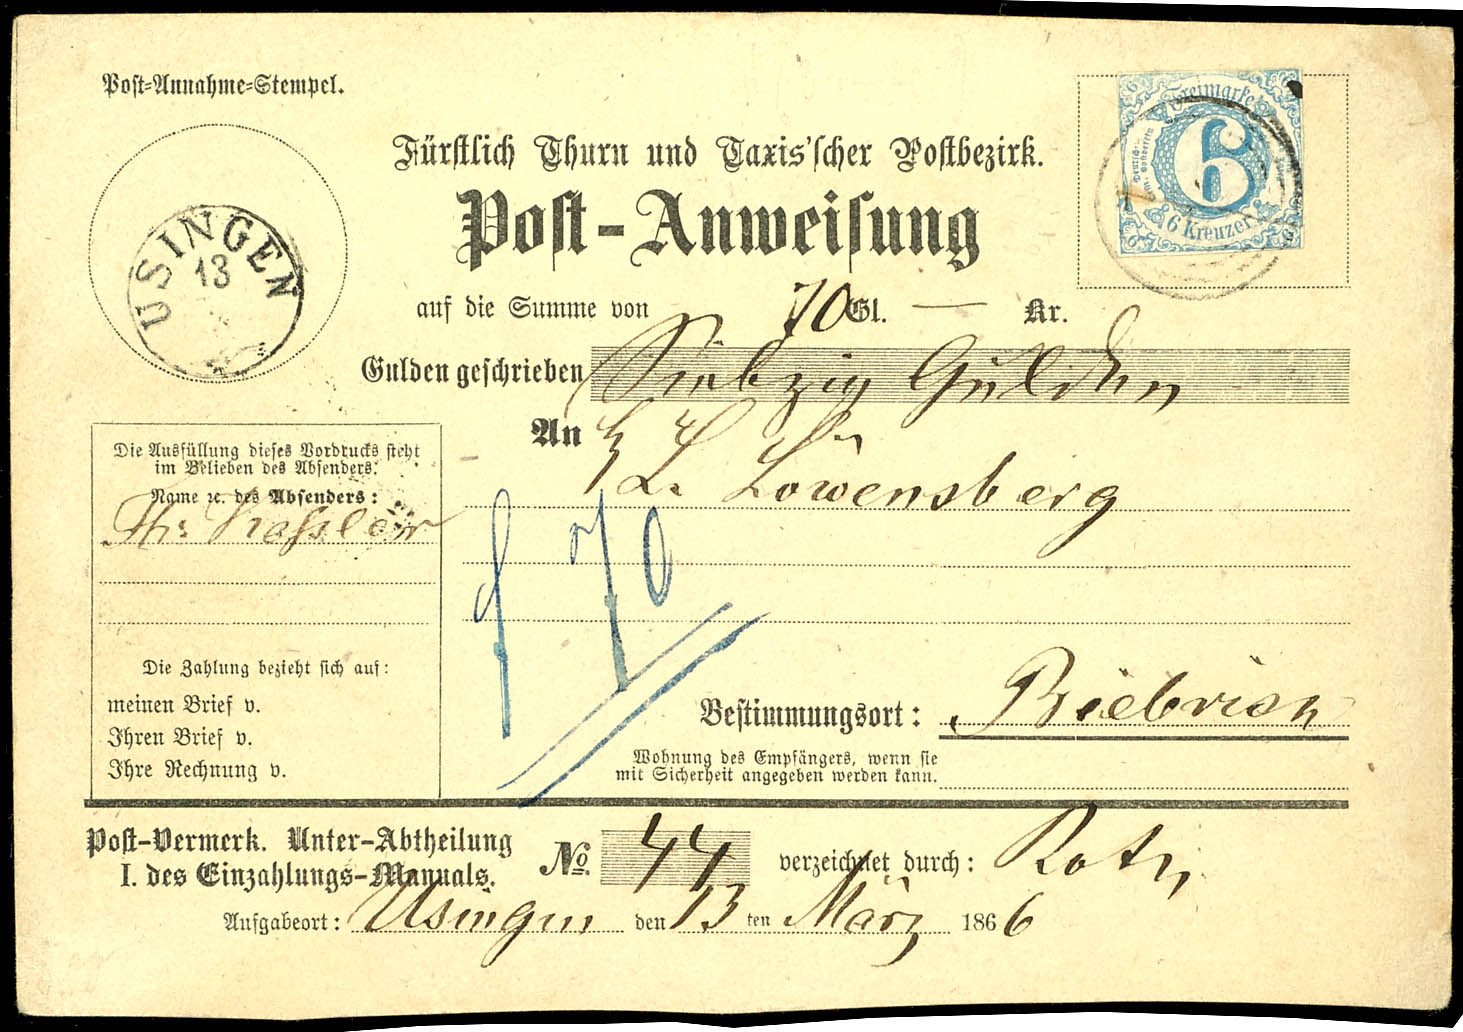 Post-Annahme-Stempel.
USINGEN
13
Fürstlich Thurn und Taxis'scher Postbezirk.
Post-Anweisung
Freimarke
6
6 Kreuzer
auf die Summe von 70 Gl. — Kr.
Gulden geschrieben Siebzig Gulden
An
L. Löwensberg
Die Ausfüllung dieses Vordrucks steht
im Belieben des Absenders.
Name ꝛc. des Absenders:
70
Die Zahlung bezieht sich auf:
meinen Brief v.
Ihren Brief v.
Ihre Rechnung v.
Bestimmungsort: Biebrich
Wohnung des Empfängers, wenn sie
mit Sicherheit angegeben werden kann.
Post-Vermerk. Unter-Abtheilung
I. des Einzahlungs-Manuals.
No. 44 verzeichnet durch: Roth
Aufgabeort: Usingen den 13 ten März 1866